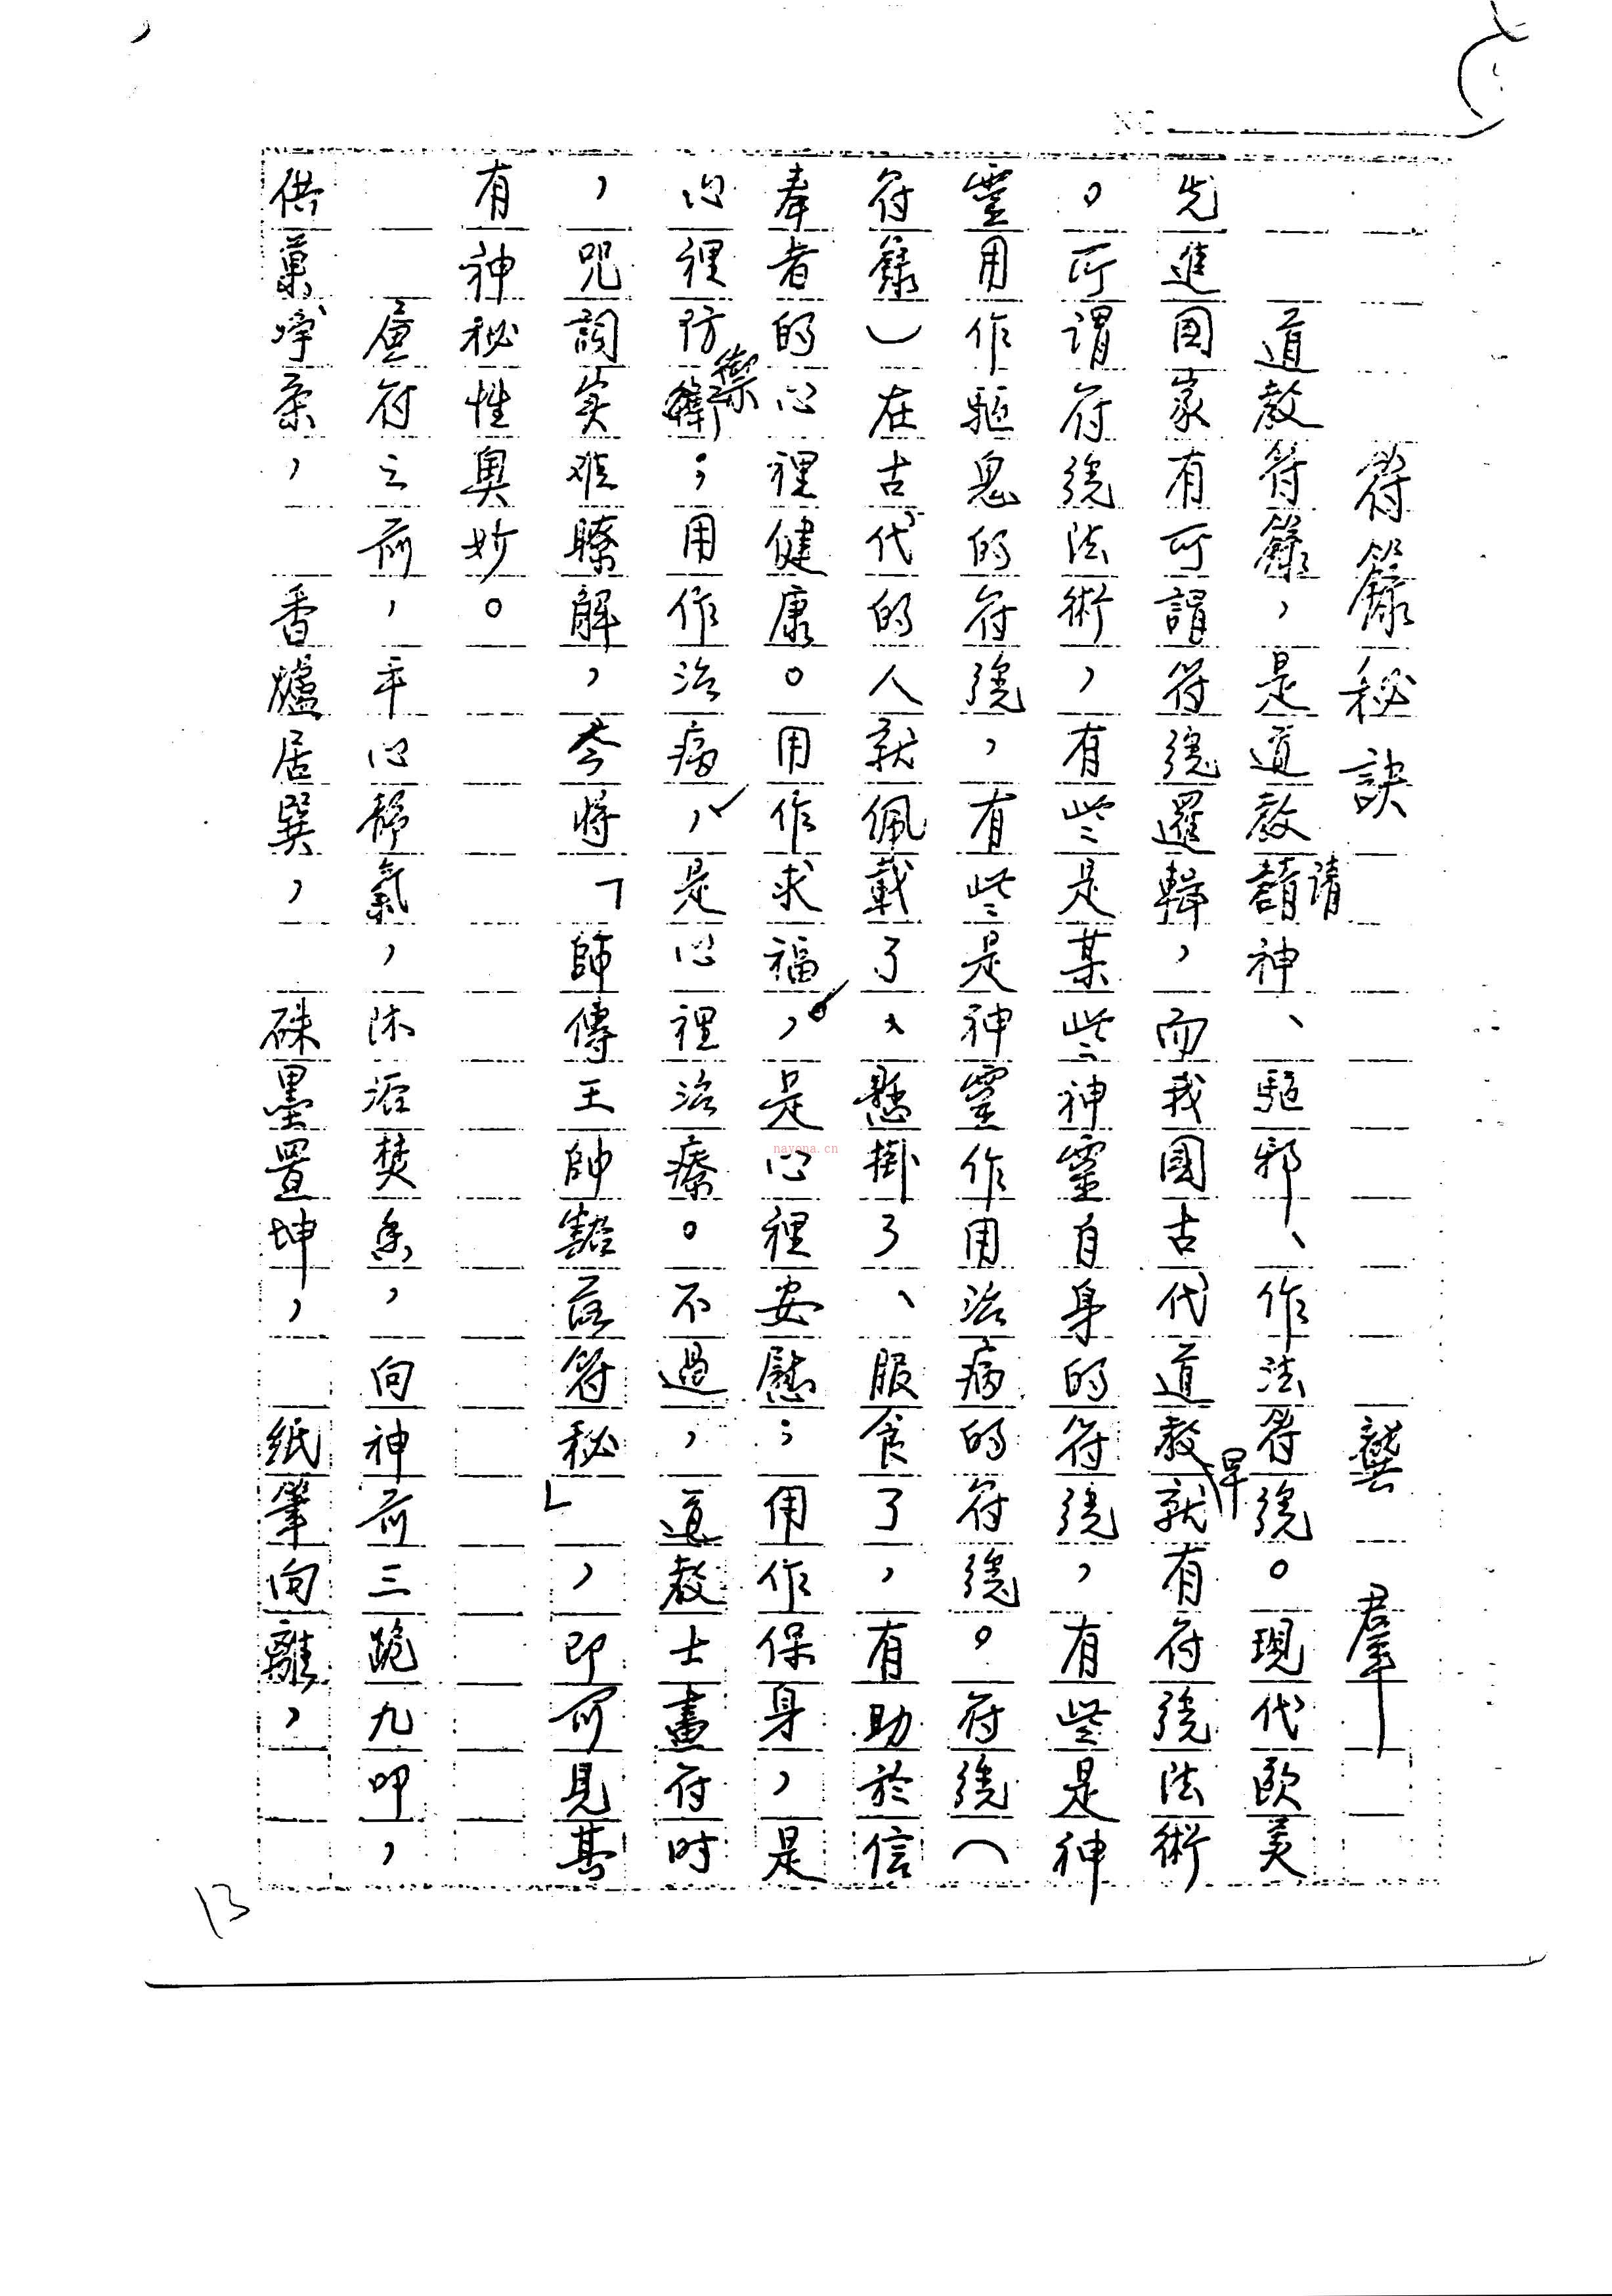 符籙秘訣 龔羣
道教符籙，是道教請神、驅邪、作法符號。現代歐美
先進國家有所謂符號邏輯，而我國古代道教早就有符號法術
。所謂符號法術，有些是某些神靈自身的符號，有些是神
靈用作驅鬼的符號，有些是神靈作用治病的符號。符號（
符籙）在古代的人就佩戴了、懸掛了、服食了，有助於信
奉者的心裡健康。用作求福，是心裡安慰；用作保身，是
心裡防禦；用作治病，是心裡治療。不過，道教士畫符时
，咒詞实难瞭解，今将「師傳王帥豁落符秘」，即可見其
有神秘性奧妙。
畫符之前，平心靜氣，沐浴焚香，向神前三跪九叩，
供菓净茶， 香爐居巽， 硃墨置坤， 纸筆向離，
13
nayona.cn